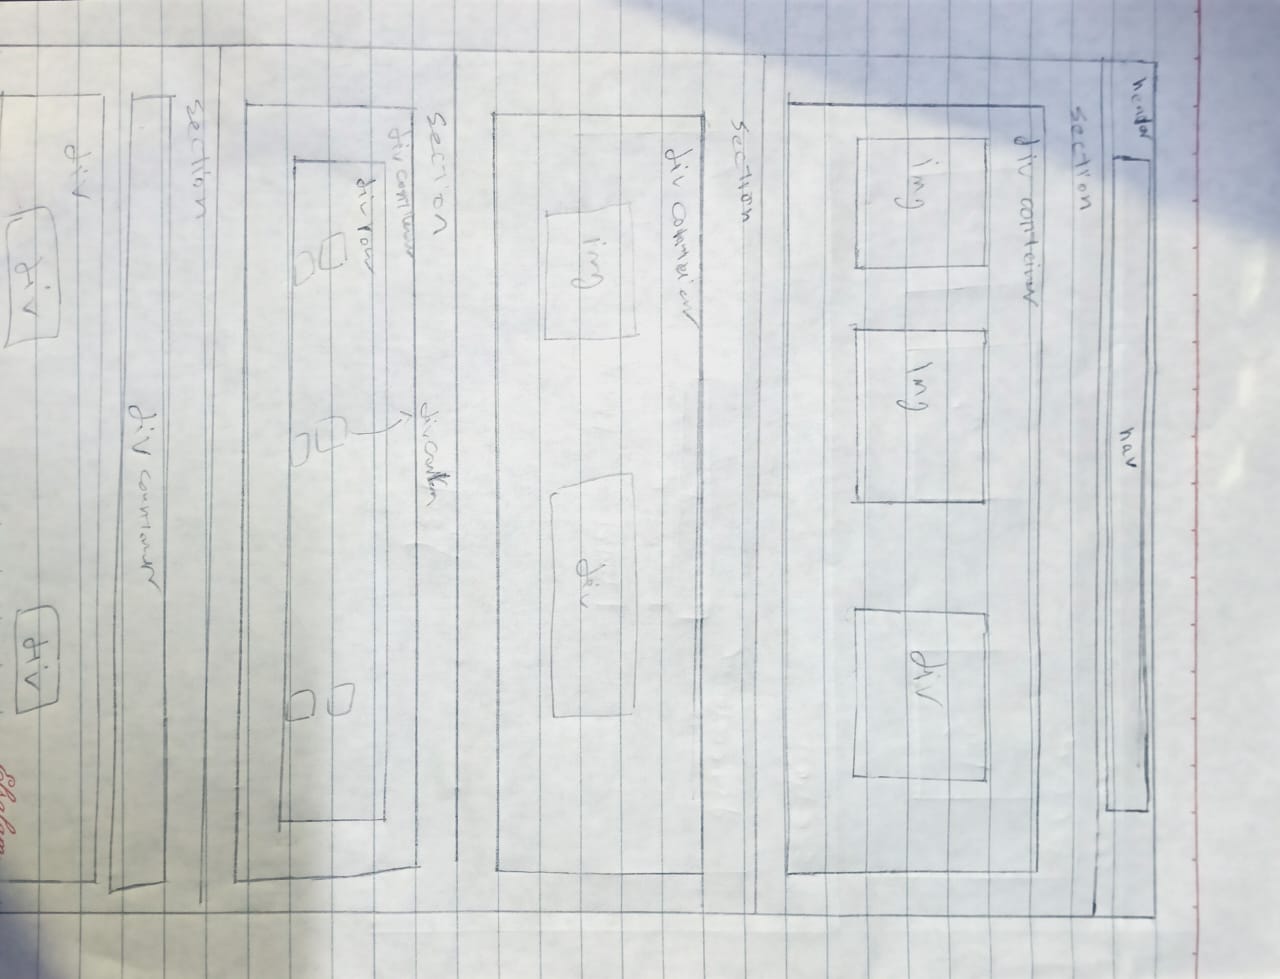 header
nav
section
div conteiner
img
img
div
section
div conteiner
img
div
section
div conteiner
div row
section
div conteiner
div
div
div